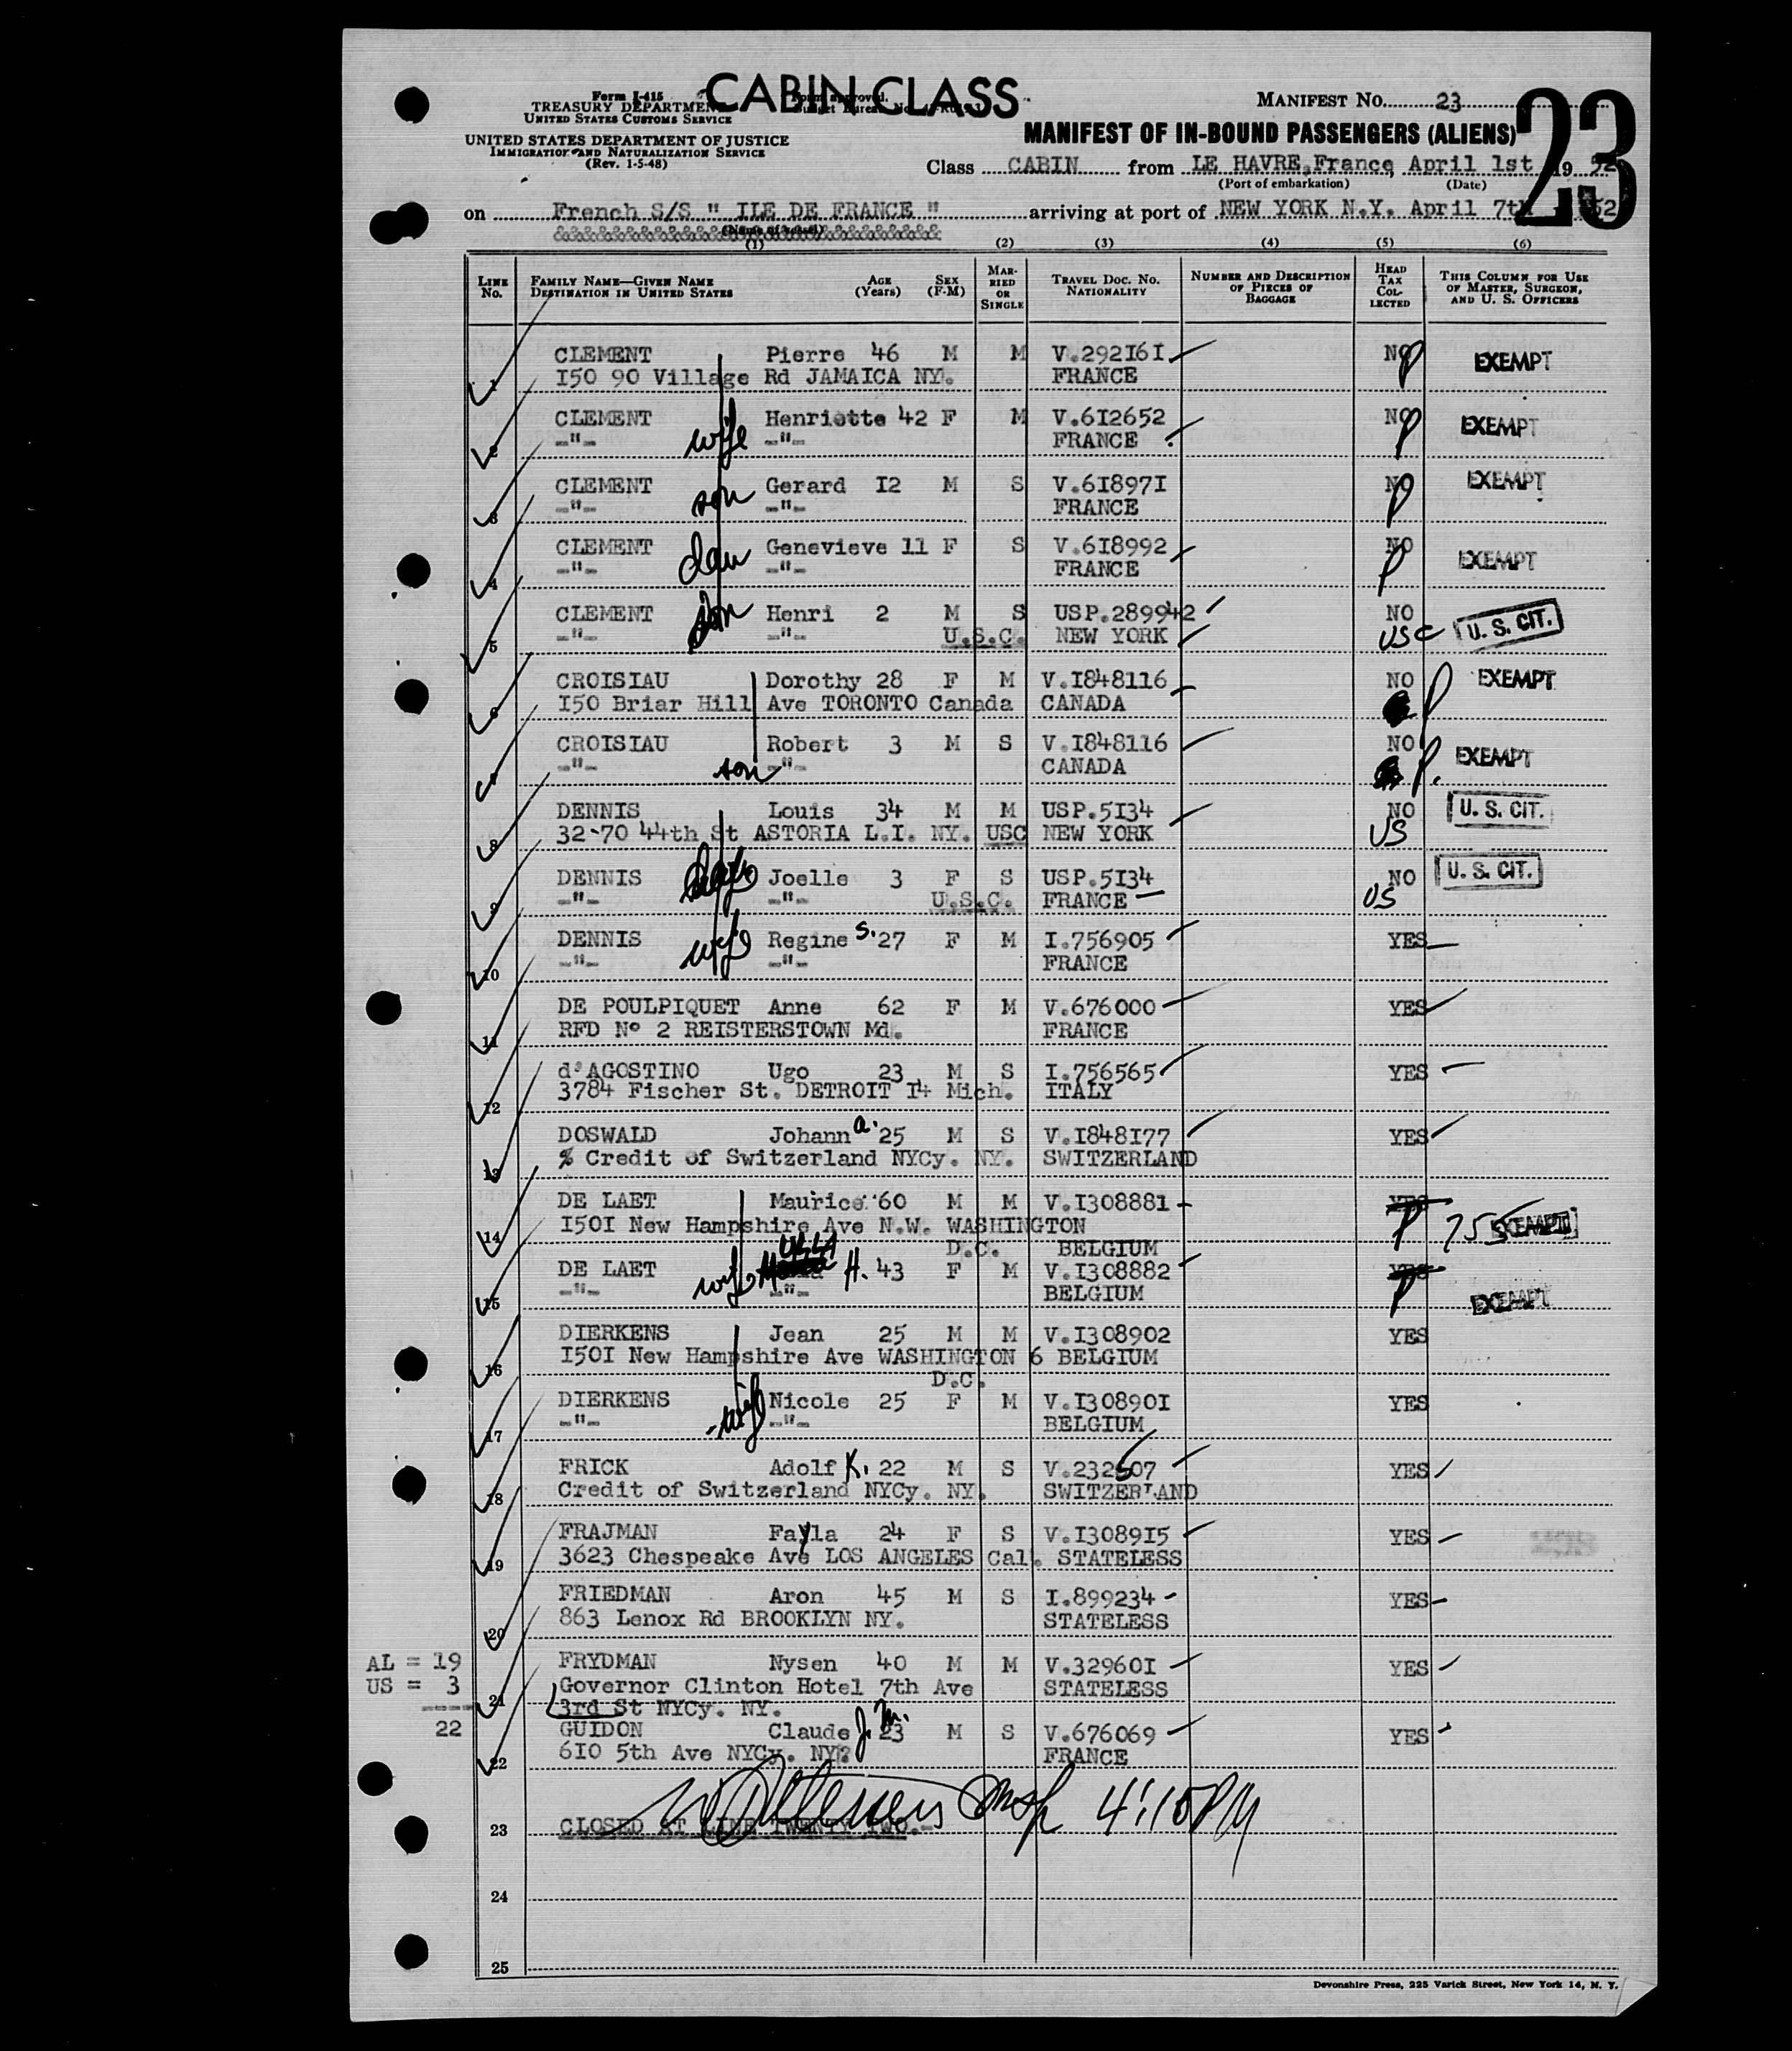 CABIN CLASS
Form I-415
TREASURY DEPARTMENT
UNITED STATES CUSTOMS SERVICE
UNITED STATES DEPARTMENT OF JUSTICE
IMMIGRATION AND NATURALIZATION SERVICE
(Rev. 1-5-48)
Form approved.
MANIFEST NO. 23
23
MANIFEST OF IN-BOUND PASSENGERS (ALIENS)
Class CABIN from LE HAVRE, France, April 1st 19 52
(Port of embarkation) (Date)
on French S/S " ILE DE FRANCE " arriving at port of NEW YORK N.Y. April 7th 52
(Name of vessel)
(1) (2) (3) (4) (5) (6)
LINE No. FAMILY NAME—GIVEN NAME DESTINATION IN UNITED STATES AGE (Years) SEX (F-M) MARRIED OR SINGLE TRAVEL DOC. NO. NATIONALITY NUMBER AND DESCRIPTION OF PIECES OF BAGGAGE HEAD TAX COLLECTED THIS COLUMN FOR USE OF MASTER, SURGEON, AND U. S. OFFICERS
CLEMENT Pierre 46 M M V.292I6I NO EXEMPT
1 I50 90 Village Rd JAMAICA NY. FRANCE
CLEMENT wife Henriette 42 F M V.6I2652 NO EXEMPT
2 -"- -"- FRANCE
CLEMENT son Gerard I2 M S V.6I897I NO EXEMPT
3 -"- -"- FRANCE
CLEMENT dau Genevieve 11 F S V.6I8992 NO EXEMPT
4 -"- -"- FRANCE
CLEMENT son Henri 2 M S USP.289942 NO U. S. CIT.
5 -"- -"- U.S.C. NEW YORK USC
CROISIAU Dorothy 28 F M V.I848116 NO EXEMPT
6 I50 Briar Hill Ave TORONTO Canada CANADA
CROISIAU Robert 3 M S V.I848116 NO EXEMPT
7 -"- son -"- CANADA
DENNIS Louis 34 M M USP.5I34 NO U. S. CIT.
8 32-70 44th St ASTORIA L.I. NY. USC NEW YORK US
DENNIS Joelle 3 F S USP.5I34 NO U. S. CIT.
9 -"- -"- U.S.C. FRANCE US
DENNIS wife Regine S. 27 F M I.756905 YES
10 -"- -"- FRANCE
DE POULPIQUET Anne 62 F M V.676000 YES
11 RFD Nº 2 REISTERSTOWN Md. FRANCE
d'AGOSTINO Ugo 23 M S I.756565 YES
12 3784 Fischer St. DETROIT I4 Mich. ITALY
DOSWALD Johann a. 25 M S V.I848I77 YES
13 % Credit of Switzerland NYCy. NY. SWITZERLAND
DE LAET Maurice 60 M M V.I308881 YES
14 I50I New Hampshire Ave N.W. WASHINGTON 755 EXEMPT
D.C. BELGIUM
DE LAET wife H. 43 F M V.I308882 YES
15 -"- -"- BELGIUM EXEMPT
DIERKENS Jean 25 M M V.I308902 YES
16 I50I New Hampshire Ave WASHINGTON 6 BELGIUM
D.C.
DIERKENS wife Nicole 25 F M V.I30890I YES
17 -"- -"- BELGIUM
FRICK Adolf K. 22 M S V.232507 YES
18 Credit of Switzerland NYCy. NY. SWITZERLAND
FRAJMAN Fayla 24 F S V.I308915 YES
19 3623 Chespeake Ave LOS ANGELES Cal. STATELESS
FRIEDMAN Aron 45 M S I.899234 YES
20 863 Lenox Rd BROOKLYN NY. STATELESS
AL = 19 FRYDMAN Nysen 40 M M V.32960I YES
US = 3 Governor Clinton Hotel 7th Ave STATELESS
21 3rd St NYCy. NY.
22 GUIDON Claude J. M. 23 M S V.676069 YES
22 6I0 5th Ave NYCy. NY. FRANCE
4:10 PM
23 CLOSED AT LINE TWENTY TWO.-
24
25
Devonshire Press, 225 Varick Street, New York 14, N. Y.